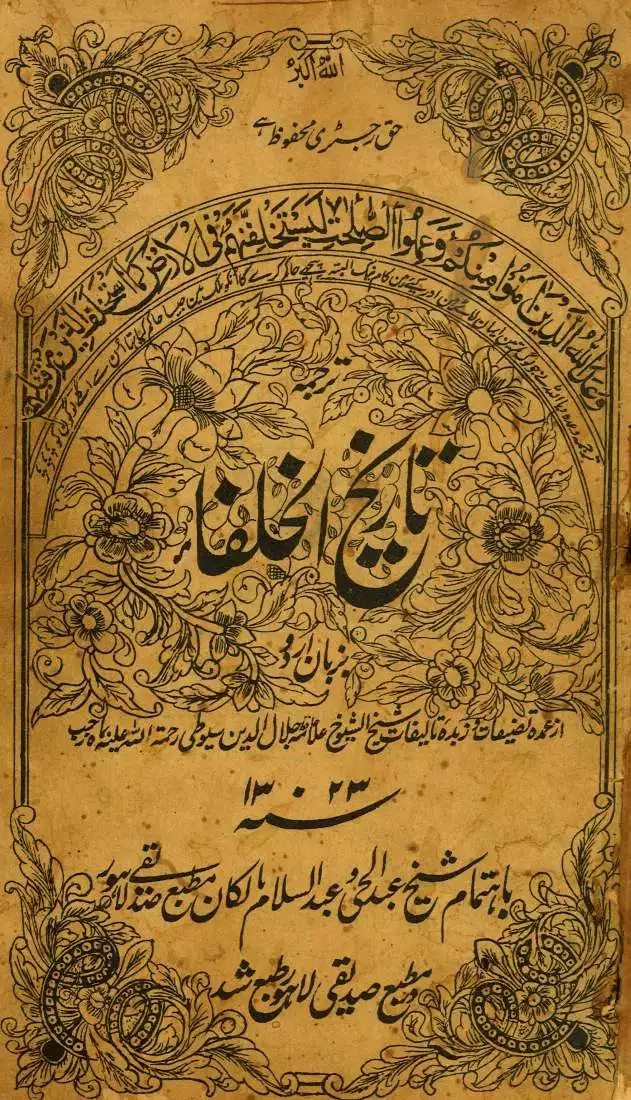 الله اکبر
حق رجسٹری محفوظ ہے
وعد الله الذین اٰمنوا منکم وعملوا الصلحٰت لیستخلفنهم فی الارض کما استخلف الذین من قبلهم
ترجمہ
تاریخ الخلفا
بزبان اردو
از عمدہ تصنیفات و زبدہ تالیفات شیخ الشیوخ علامہ جلال الدین سیوطی رحمۃ اللہ علیہ
سنہ ۱۳۲۳
باہتمام شیخ عبد الحی و عبد السلام مالکان مطبع صدیقی لاہور
در مطبع صدیقی لاہور طبع شد